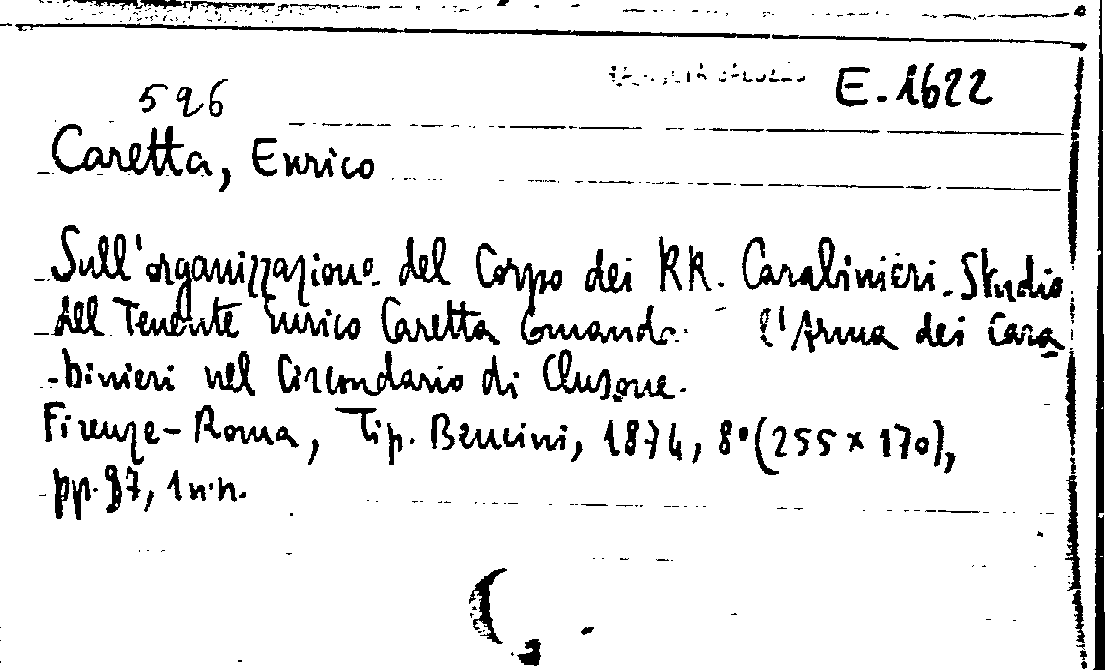 E.1622
596
Caretta, Enrico
Sull'organizzazione del Corpo dei RR. Carabinieri. Studio
del Tenente Enrico Caretta l'Arma dei Cara
-binieri nel Circondario di Clusone.
Firenze-Roma, Tip. Bencini, 1874, 8°(255 x 170),
pp. 97, 1 n.n.